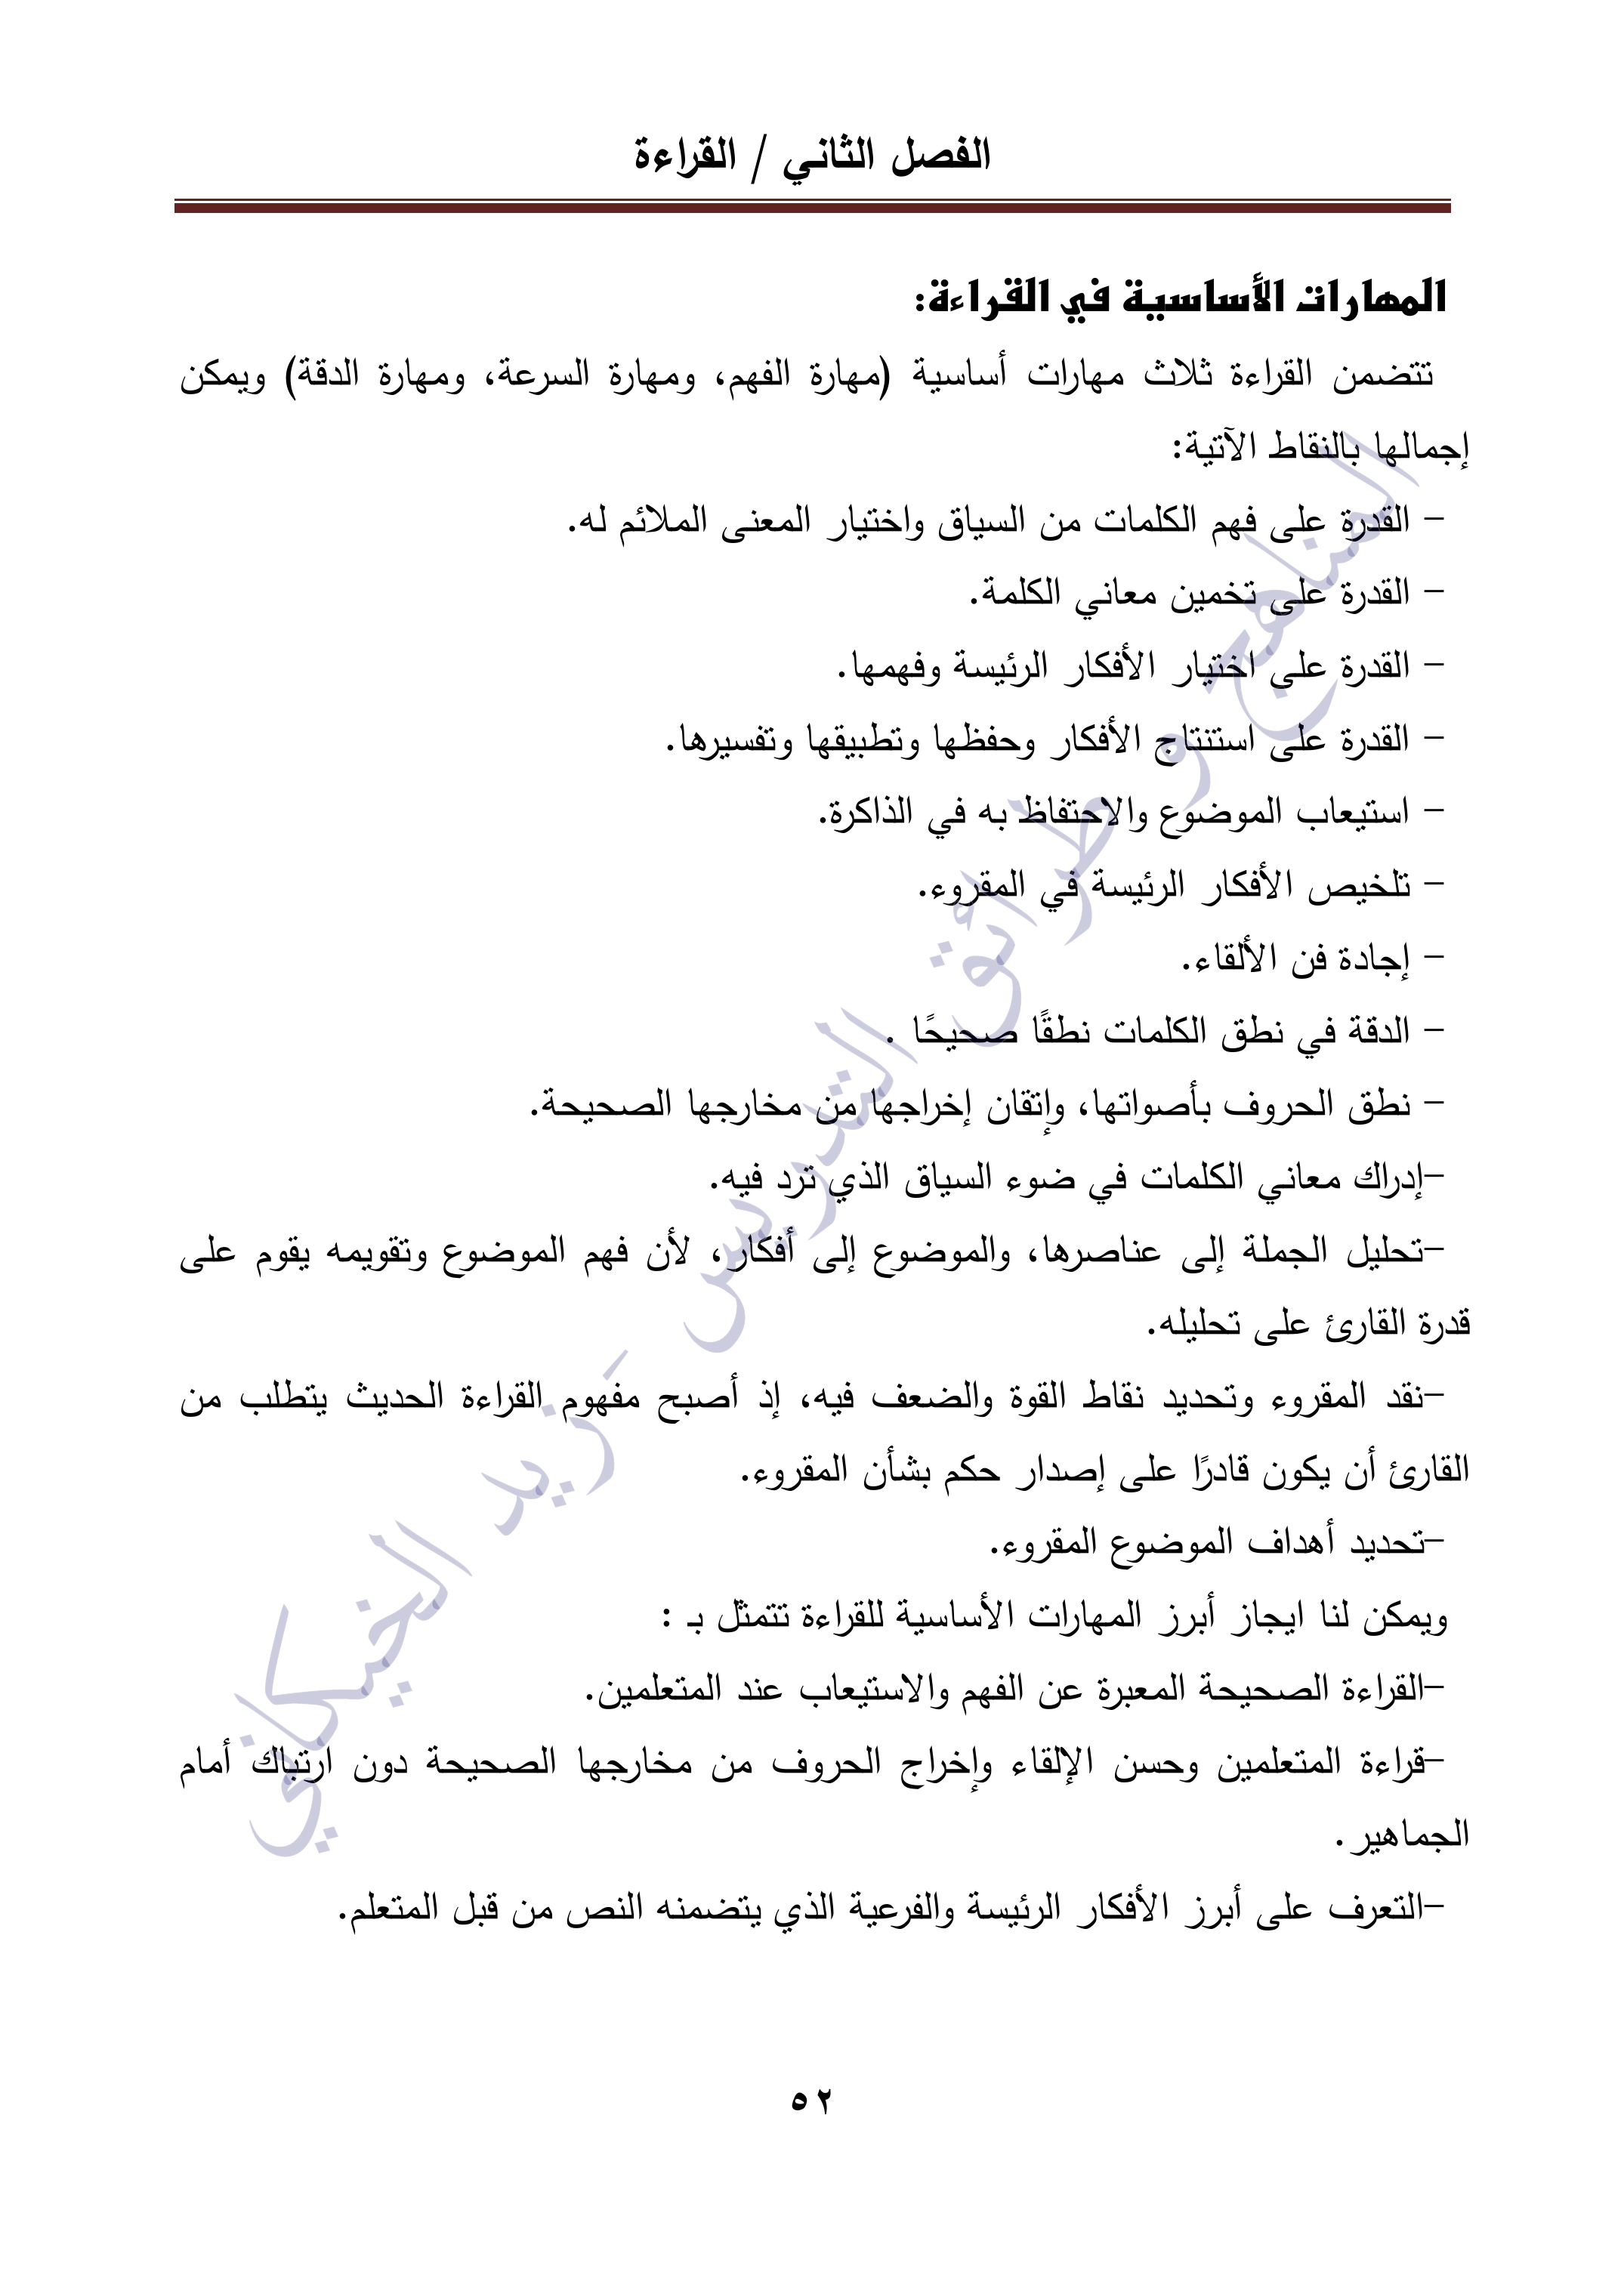 الفصل الثاني / القراءة
المهارات الأساسية في القراءة:
تتضمن القراءة ثلاث مهارات أساسية (مهارة الفهم، ومهارة السرعة، ومهارة الدقة) ويمكن
إجمالها بالنقاط الآتية:
- القدرة على فهم الكلمات من السياق واختيار المعنى الملائم له.
- القدرة على تخمين معاني الكلمة.
- القدرة على اختيار الأفكار الرئيسة وفهمها.
- القدرة على استنتاج الأفكار وحفظها وتطبيقها وتفسيرها.
- استيعاب الموضوع والاحتفاظ به في الذاكرة.
- تلخيص الأفكار الرئيسة في المقروء.
- إجادة فن الألقاء.
- الدقة في نطق الكلمات نطقًا صحيحًا .
- نطق الحروف بأصواتها، وإتقان إخراجها من مخارجها الصحيحة.
-إدراك معاني الكلمات في ضوء السياق الذي ترد فيه.
-تحليل الجملة إلى عناصرها، والموضوع إلى أفكار، لأن فهم الموضوع وتقويمه يقوم على
قدرة القارئ على تحليله.
-نقد المقروء وتحديد نقاط القوة والضعف فيه، إذ أصبح مفهوم القراءة الحديث يتطلب من
القارئ أن يكون قادرًا على إصدار حكم بشأن المقروء.
-تحديد أهداف الموضوع المقروء.
ويمكن لنا ايجاز أبرز المهارات الأساسية للقراءة تتمثل بـ :
-القراءة الصحيحة المعبرة عن الفهم والاستيعاب عند المتعلمين.
-قراءة المتعلمين وحسن الإلقاء وإخراج الحروف من مخارجها الصحيحة دون ارتباك أمام
الجماهير.
-التعرف على أبرز الأفكار الرئيسة والفرعية الذي يتضمنه النص من قبل المتعلم.
٥٢
المناهج و طرائق التدريس - زيد الخيكاني